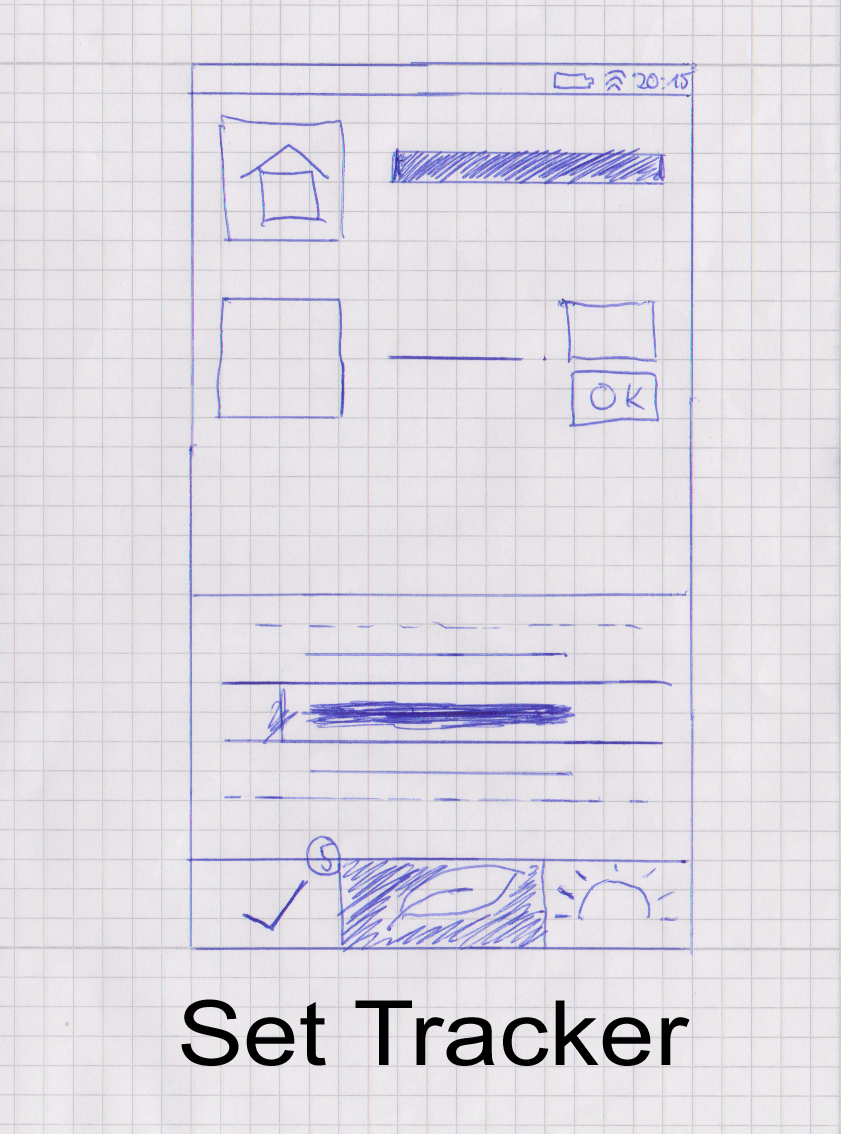 20:15
OK
5
Set Tracker